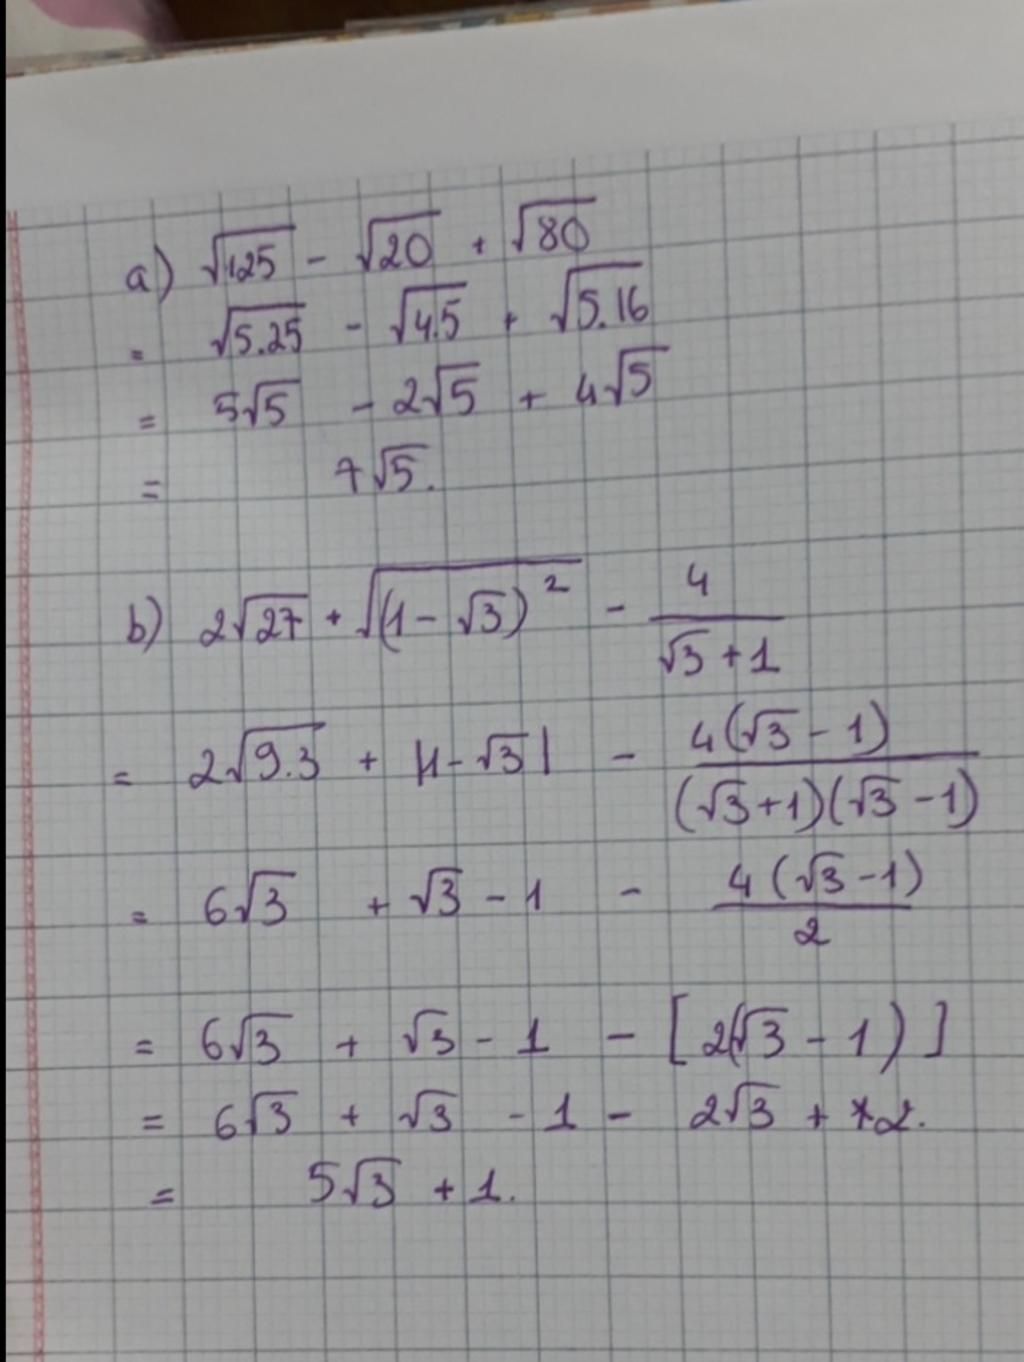 a) √125 - √20 + √80
= √5.25 - √4.5 + √5.16
= 5√5 - 2√5 + 4√5
= 7√5.
b) 2√27 + √(1-√3)² - 4/(√3+1)
= 2√9.3 + |1-√3| - 4(√3-1)/(√3+1)(√3-1)
= 6√3 + √3 - 1 - 4(√3-1)/2
= 6√3 + √3 - 1 - [2(√3-1)]
= 6√3 + √3 - 1 - 2√3 + 2.
= 5√3 + 1.